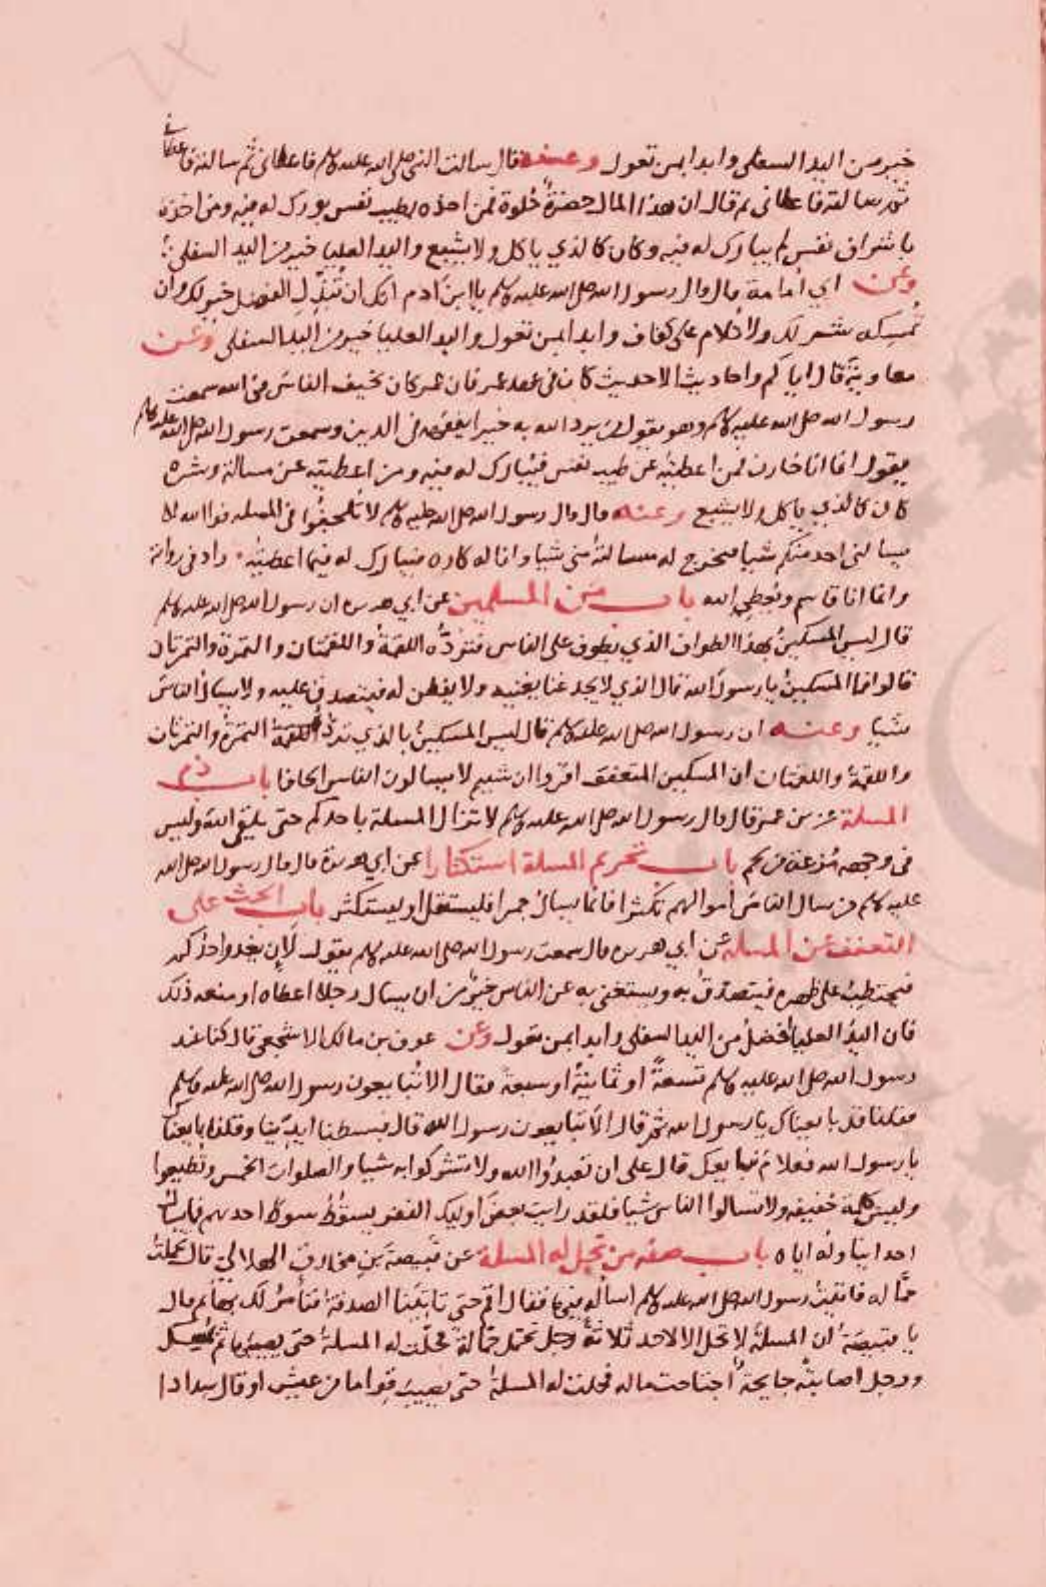 خير من اليد السفلى وابدا بمن تعول وعنه قال سالت النبي صلى الله عليه وسلم فاعطاني ثم سالته فاعطاني
ثم سالته فاعطاني ثم قال ان هذا المال خضرة حلوة فمن اخذه بطيب نفس بورك له فيه ومن اخذه
باشراف نفس لم يبارك له فيه وكان كالذي ياكل ولا يشبع واليد العليا خير من اليد السفلى
وعن ابي امامة قال قال رسول الله صلى الله عليه وسلم يا ابن ادم انك ان تبذل الفضل خير لك وان
تمسكه شر لك ولا تلام على كفاف وابدا بمن تعول واليد العليا خير من اليد السفلى وعن
معاوية قال اياكم واحاديث الا حديث كان في عهد عمر فان عمر كان يخيف الناس في الله سمعت
رسول الله صلى الله عليه وسلم وهو يقول من يرد الله به خيرا يفقهه في الدين وسمعت رسول الله صلى الله عليه وسلم
يقول انما انا خازن فمن اعطيته عن طيب نفس فيبارك له فيه ومن اعطيته عن مسالة وشره
كان كالذي ياكل ولا يشبع وعنه قال قال رسول الله صلى الله عليه وسلم لا تلحفوا في المسلة فوالله لا
يسالني احد منكم شيا فتخرج له مسالته مني شيا وانا له كاره فيبارك له فيما اعطيته زاد في رواية
وانما انا قاسم ويعطي الله باب من المسكين عن ابي هريرة ان رسول الله صلى الله عليه وسلم
قال ليس المسكين بهذا الطواف الذي يطوف على الناس فترده اللقمة واللقمتان والتمرة والتمرتان
قالوا فما المسكين يا رسول الله قال الذي لا يجد غنا يغنيه ولا يفطن له فيتصدق عليه ولا يسال الناس
شيا وعنه ان رسول الله صلى الله عليه وسلم قال ليس المسكين بالذي ترده التمرة والتمرتان
واللقمة واللقمتان ان المسكين المتعفف اقروا ان شيتم لا يسالون الناس الحافا باب ذم
المسلة عن بن عمر قال قال رسول الله صلى الله عليه وسلم لا تزال المسلة باحدكم حتى يلقى الله وليس
في وجهه مزعة من لحم باب تحريم المسلة استكثارا عن ابي هريرة قال قال رسول الله صلى الله
عليه وسلم من سال الناس اموالهم تكثرا فانما يسال جمرا فليستقل او ليستكثر باب الحث على
التعفف عن المسلة عن ابي هريرة قال سمعت رسول الله صلى الله عليه وسلم يقول لان يغدوا احدكم
فيحتطب على ظهره فيتصدق به ويستغني به عن الناس خير من ان يسال رجلا اعطاه او منعه ذلك
فان اليد العليا افضل من اليد السفلى وابدا بمن تعول وعن عوف بن مالك الاشجعي قال كنا عند
رسول الله صلى الله عليه وسلم تسعة او ثمانية او سبعة فقال الا تبايعون رسول الله صلى الله عليه وسلم
فقلنا قد بايعناك يا رسول الله ثم قال الا تبايعون رسول الله قال فبسطنا ايدينا وقلنا بايعناك
يا رسول الله فعلام نبايعك قال على ان تعبدوا الله ولا تشركوا به شيا والصلوات الخمس وتطيعوا
وليس كلمة خفيفه ولا تسالوا الناس شيا فلقد رايت بعض اوليك النفر يسقط سوط احدهم فما يسال
احدا يناوله اياه باب صفة من تحل له المسلة عن قبيصة بن مخارق الهلالي قال تحملت
حمالة فاتيت رسول الله صلى الله عليه وسلم اساله فيها فقال اقم حتى تاتينا الصدقة فنامر لك بها ثم قال
يا قبيصة ان المسلة لا تحل الا لاحد ثلاثة رجل تحمل حمالة فحلت له المسلة حتى يصيبها ثم يمسك
ورجل اصابته جايحة اجتاحت ماله فحلت له المسلة حتى يصيب قواما من عيش او قال سدادا